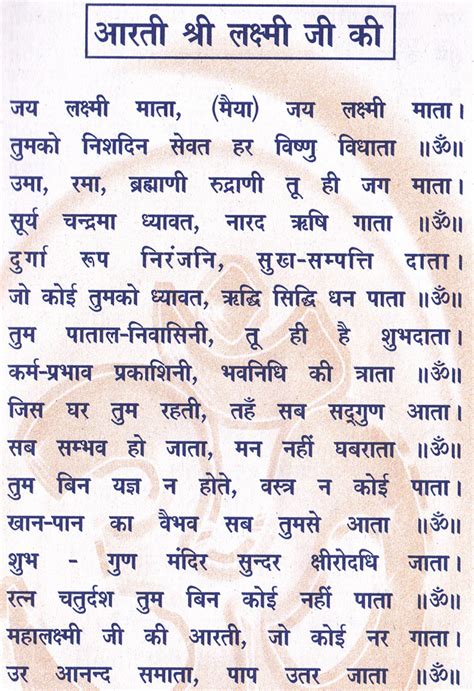 आरती श्री लक्ष्मी जी की
जय लक्ष्मी माता, (मैया) जय लक्ष्मी माता।
तुमको निशदिन सेवत हर विष्णु विधाता ॥ॐ॥
उमा, रमा, ब्रह्माणी रुद्राणी तू ही जग माता।
सूर्य चन्द्रमा ध्यावत, नारद ऋषि गाता ॥ॐ॥
दुर्गा रूप निरंजनि, सुख-सम्पत्ति दाता।
जो कोई तुमको ध्यावत, ऋद्धि सिद्धि धन पाता ॥ॐ॥
तुम पाताल-निवासिनी, तू ही है शुभदाता।
कर्म-प्रभाव प्रकाशिनी, भवनिधि की त्राता ॥ॐ॥
जिस घर तुम रहती, तहँ सब सद्‌गुण आता।
सब सम्भव हो जाता, मन नहीं घबराता ॥ॐ॥
तुम बिन यज्ञ न होते, वस्त्र न कोई पाता।
खान-पान का वैभव सब तुमसे आता ॥ॐ॥
शुभ - गुण मंदिर सुन्दर क्षीरोदधि जाता।
रत्न चतुर्दश तुम बिन कोई नहीं पाता ॥ॐ॥
महालक्ष्मी जी की आरती, जो कोई नर गाता।
उर आनन्द समाता, पाप उतर जाता ॥ॐ॥